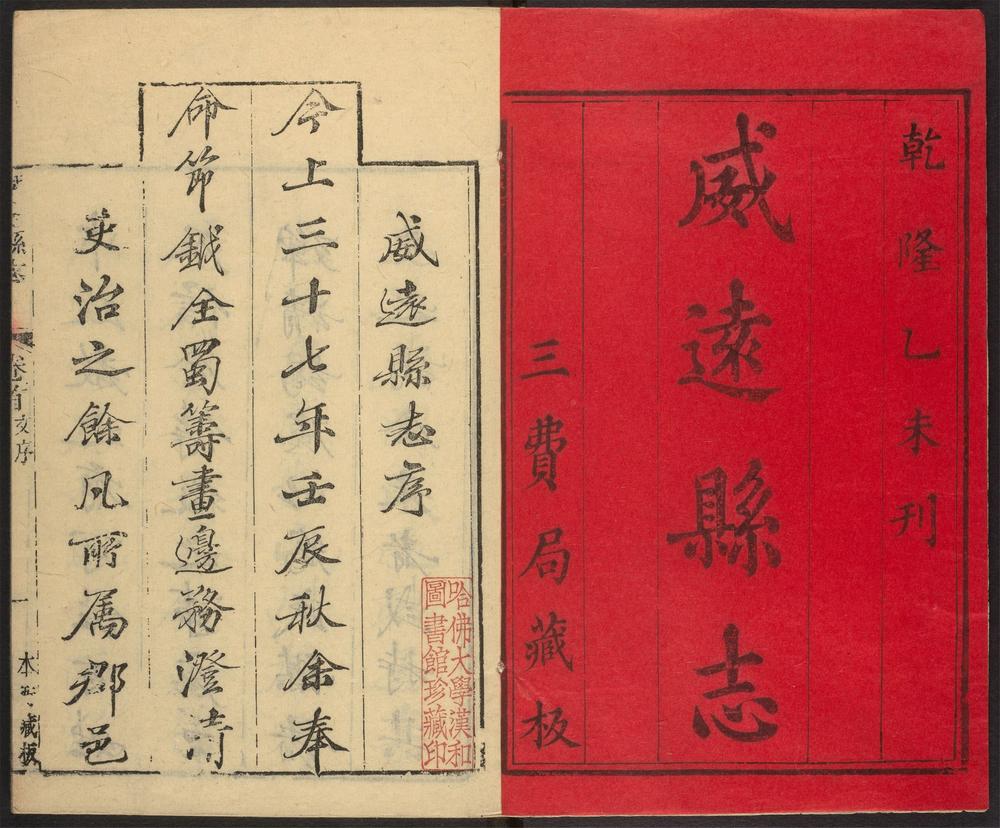 乾隆乙未刊
威遠縣志
三費局藏板
威遠縣志序
今上三十七年壬辰秋余奉
命節鉞全蜀籌畫邊務澄清
吏治之餘凡所属郡邑
哈佛大學漢和
圖書館珍藏印
縣志
卷首
序
一
本
藏板